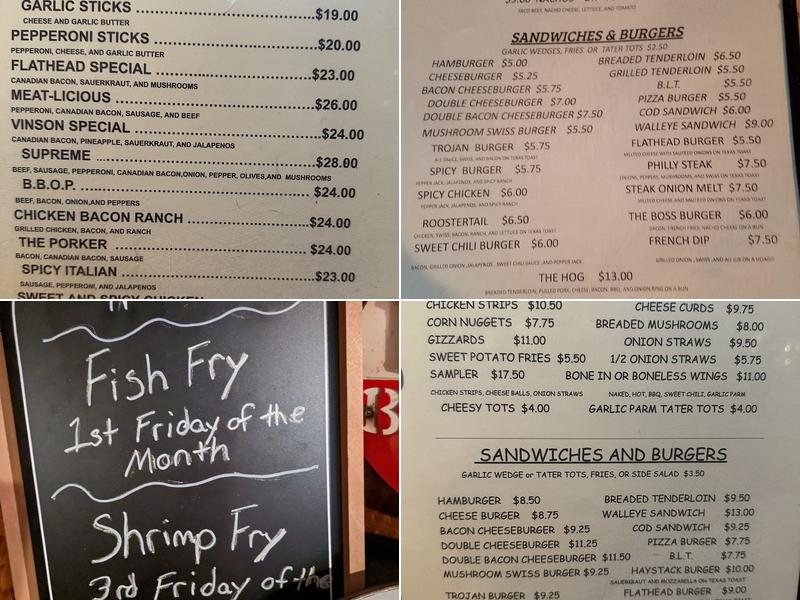 GARLIC STICKS $19.00
CHEESE AND GARLIC BUTTER
PEPPERONI STICKS $20.00
PEPPERONI, CHEESE, AND GARLIC BUTTER
FLATHEAD SPECIAL $23.00
CANADIAN BACON, SAUERKRAUT, AND MUSHROOMS
MEAT-LICIOUS $26.00
PEPPERONI, CANADIAN BACON, SAUSAGE, AND BEEF
VINSON SPECIAL $24.00
CANADIAN BACON, PINEAPPLE, SAUERKRAUT, AND JALAPENOS
SUPREME $28.00
BEEF, SAUSAGE, PEPPERONI, CANADIAN BACON,ONION, PEPPER, OLIVES,AND MUSHROOMS
B.B.O.P. $24.00
BEEF, BACON, ONION,AND PEPPERS
CHICKEN BACON RANCH $24.00
GRILLED CHICKEN, BACON, AND RANCH
THE PORKER $24.00
BACON, CANADIAN BACON, SAUSAGE
SPICY ITALIAN $23.00
SAUSAGE, PEPPERONI, AND JALAPENOS
SWEET AND SPICY CHICKEN
TACO BEEF, NACHO CHEESE, LETTUCE, AND TOMATO
SANDWICHES & BURGERS
GARLIC WEDGES, FRIES OR TATER TOTS $2.50
HAMBURGER $5.00
CHEESEBURGER $5.25
BACON CHEESEBURGER $5.75
DOUBLE CHEESEBURGER $7.00
DOUBLE BACON CHEESEBURGER $7.50
MUSHROOM SWISS BURGER $5.50
TROJAN BURGER $5.75
A-1 SAUCE, SWISS, AND BACON ON TEXAS TOAST
SPICY BURGER $5.75
PEPPER JACK, JALAPENOS, AND SPICY RANCH
SPICY CHICKEN $6.00
PEPPER JACK, JALAPENOS, AND SPICY RANCH
ROOSTERTAIL $6.50
CHICKEN, SWISS, BACON, RANCH, AND LETTUCE ON TEXAS TOAST
SWEET CHILI BURGER $6.00
BACON, GRILLED ONION, JALAPENOS, SWEET CHILI SAUCE, AND PEPPER JACK
BREADED TENDERLOIN $6.50
GRILLED TENDERLOIN $5.50
B.L.T. $5.50
PIZZA BURGER $5.50
COD SANDWICH $6.00
WALLEYE SANDWICH $9.00
FLATHEAD BURGER $5.50
MELTED CHEESE WITH SAUTEED ONIONS ON TEXAS TOAST
PHILLY STEAK $7.50
ONIONS, PEPPERS, MUSHROOMS, AND SWISS ON TEXAS TOAST
STEAK ONION MELT $7.50
MELTED CHEESE, AND SAUTEED ONIONS ON TEXAS TOAST
THE BOSS BURGER $6.00
BACON, FRENCH FRIES, NACHO CHEESE ON A BUN
FRENCH DIP $7.50
GRILLED ONION, SWISS, AND AU JUS ON A HOAGIE
THE HOG $13.00
BREADED TENDERLOIN, PULLED PORK, CHEESE, BACON, BBQ, AND ONION RING ON A BUN
Fish Fry
1st Friday of the
Month
Shrimp Fry
3rd Friday of the
CHICKEN STRIPS $10.50
CORN NUGGETS $7.75
GIZZARDS $11.00
SWEET POTATO FRIES $5.50
SAMPLER $17.50
CHICKEN STRIPS, CHEESE BALLS, ONION STRAWS
CHEESY TOTS $4.00
CHEESE CURDS $9.75
BREADED MUSHROOMS $8.00
ONION STRAWS $9.50
1/2 ONION STRAWS $5.75
BONE IN OR BONELESS WINGS $11.00
NAKED, HOT, BBQ, SWEET CHILI, GARLIC PARM
GARLIC PARM TATER TOTS $4.00
SANDWICHES AND BURGERS
GARLIC WEDGE or TATER TOTS, FRIES, OR SIDE SALAD $3.50
HAMBURGER $8.50
CHEESE BURGER $8.75
BACON CHEESEBURGER $9.25
DOUBLE CHEESEBURGER $11.25
DOUBLE BACON CHEESEBURGER $11.50
MUSHROOM SWISS BURGER $9.25
TROJAN BURGER $9.25
BREADED TENDERLOIN $9.50
WALLEYE SANDWICH $13.00
COD SANDWICH $9.25
PIZZA BURGER $7.75
B.L.T. $7.75
HAYSTACK BURGER $10.00
SAUERKRAUT AND MOZZARELLA ON TEXAS TOAST
FLATHEAD BURGER $9.00